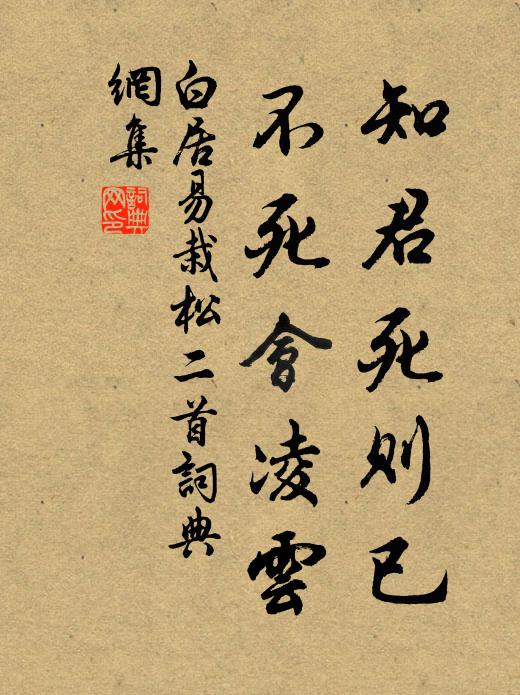 知君死则已
不死會凌雲
白居易栽松二首詞典
網集
詞典网印